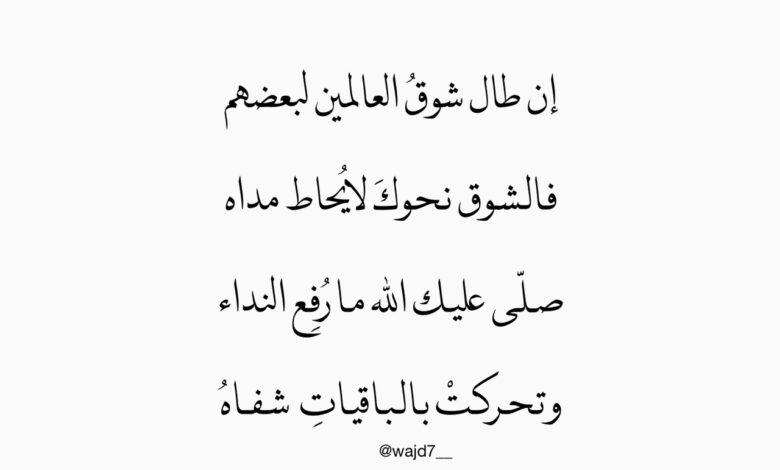 إن طال شوقُ العالمين لبعضهم
فالشوق نحوكَ لايُحاط مداه
صلّى عليك الله ما رُفِع النداء
وتحركتْ بالباقياتِ شفاهُ
@wajd7__